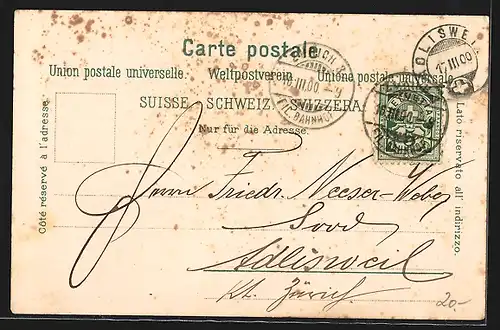 Carte postale
Union postale universelle. Weltpostverein. Unione postale universale
SUISSE. SCHWEIZ. SVIZZERA.
Nur für die Adresse.
Côté réservé à l'adresse.
Lato riservato all' indirizzo.
Herrn Friedr. Neeser-Weber
Sood
Adlisweil
Kt. Zürich.
20.-